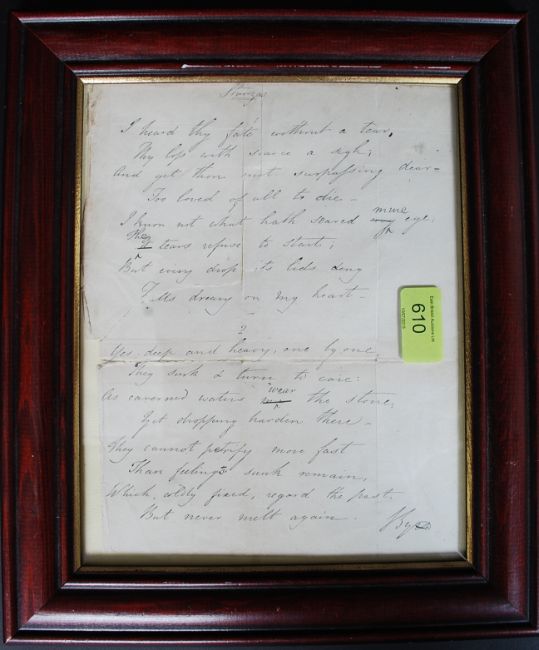 Stanzas
I heard thy fate without a tear,
Thy loss with scarce a sigh;
And yet thou wast surpassing dear -
Too loved of all to die -
I know not what hath seared mine eye;
The tears refuse to start;
But every drop its lids deny
Falls dreary on my heart -
2
Yes, deep and heavy, one by one,
They sink & turn to care:
As caverned waters wear the stone,
Yet dropping harden there -
They cannot petrify more fast
Than feelings sunk remain,
Which, coldly fixed, regard the past,
But never melt again.
610